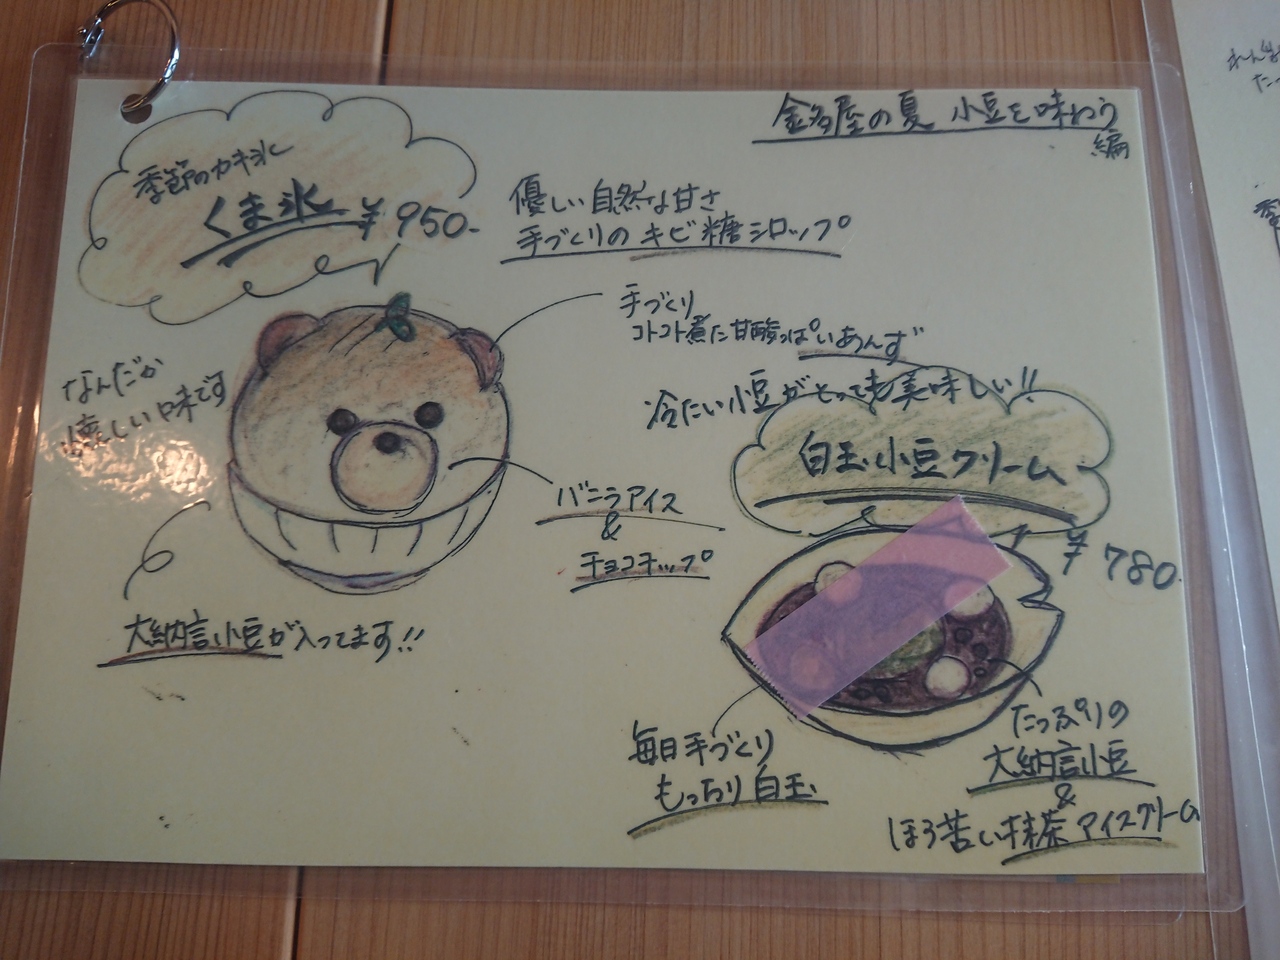 金多屋の夏 小豆を味わう
編
季節のカキ氷
くま氷 ¥950-
優しい自然な甘さ
手づくりのキビ糖シロップ
手づくり
コトコト煮た甘酸っぱいあんず
なんだか
懐しい味です
バニラアイス
&
チョコチップ
大納言小豆が入ってます!!
冷たい小豆がとっても美味しい!!
白玉小豆クリーム
¥780-
毎日手づくり
もっちり白玉
たっぷりの
大納言小豆
&
ほろ苦い抹茶アイスクリーム